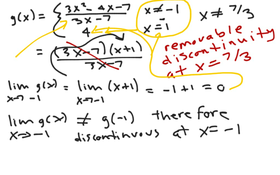 g(x) = { 3x² - 4x - 7 / 3x - 7   x ≠ -1   x ≠ 7/3
4   x = -1
removable
discontinuity
at x = 7/3
= (3x-7)(x+1) / 3x-7
lim x→-1 g(x) = lim x→-1 (x+1) = -1+1 = 0
lim x→-1 g(x) ≠ g(-1) therefore
discontinuous at x = -1